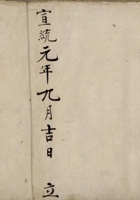 宣統元年九月吉日 立